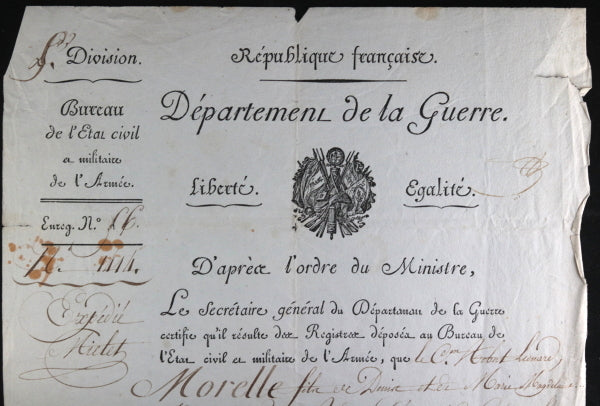 5e. Division.
République française.
Bureau
de l'Etat civil
et militaire
de l'Armée.
Département de la Guerre.
Liberté.
Egalité.
Enreg. N.º
D'après l'ordre du Ministre,
Expédié
Le Secrétaire général du Départemen de la Guerre
certifie qu'il résulte des Registres déposés au Bureau de
l'Etat civil et militaire de l'Armée, que le C.en
Morelle fils de Denis et de Marie